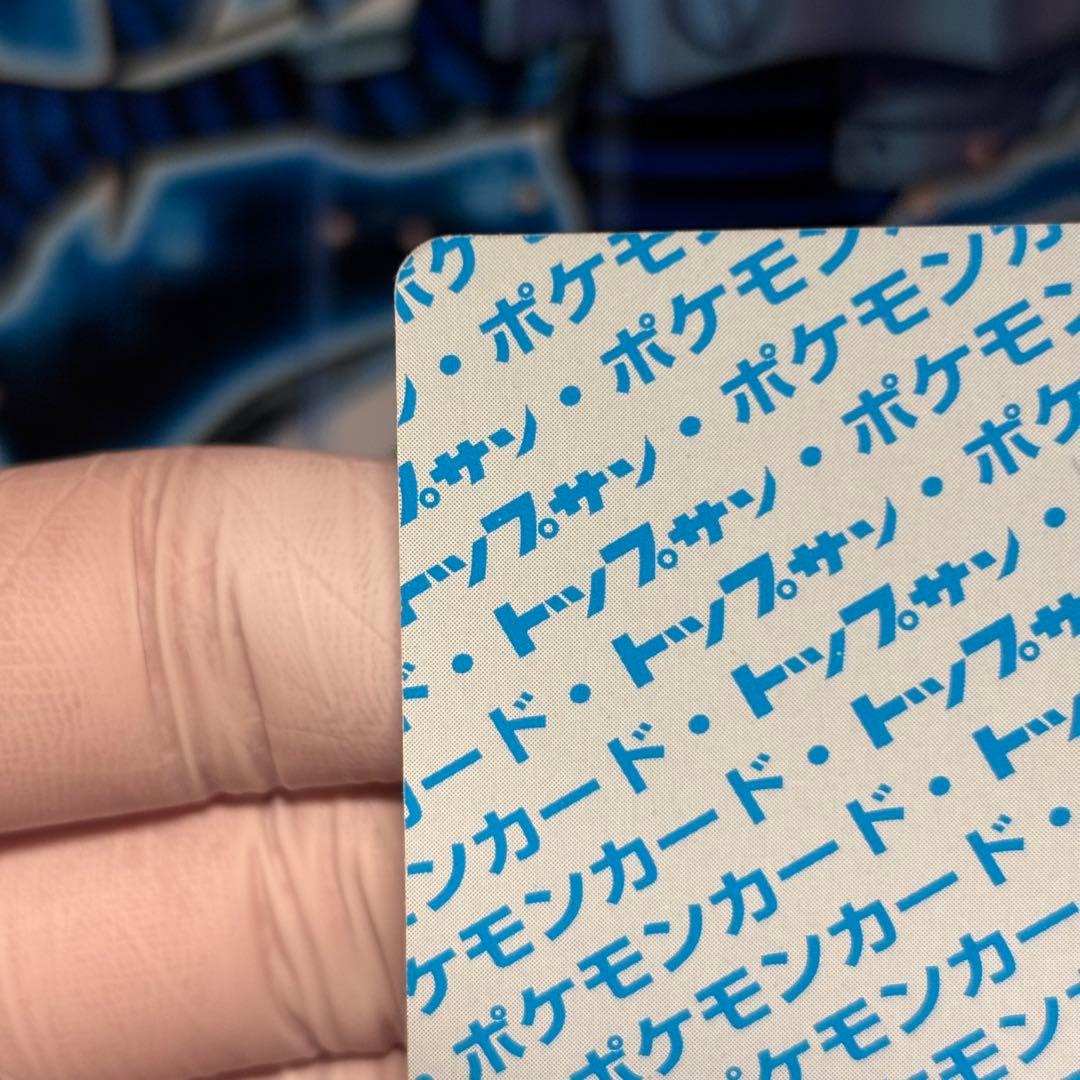 ポケ
ン・ポケモ
プサン・ポケモン
トップサン・ポケモンカ
ド・トップサン・ポケモン
カード・トップサン・ポケ
ンカード・トップサン・
ケモンカード・トップサ
ポケモンカード・トッ
ポケモンカード・
ケモンカー
モン